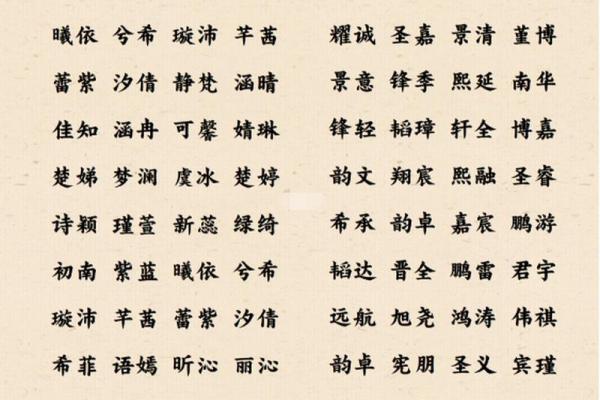 曦依 兮希 璇沛 芊茜 耀诚 圣嘉 景清 堇博
蕾紫 汐倩 静梵 涵晴 景意 锋季 熙延 南华
佳知 涵冉 可馨 婧琳 锋轻 韬璋 轩全 博嘉
楚娣 梦澜 虞冰 楚婷 韵文 翔宸 熙融 圣睿
诗颖 瑾萱 新蕊 绿绮 希承 韵卓 嘉宸 鹏游
初南 紫蓝 曦依 兮希 韬达 晋全 鹏雷 君宇
璇沛 芊茜 蕾紫 汐倩 远航 旭尧 鸿涛 伟祺
希菲 语嫣 昕沁 丽沁 韵卓 宪朋 圣义 宾瑾